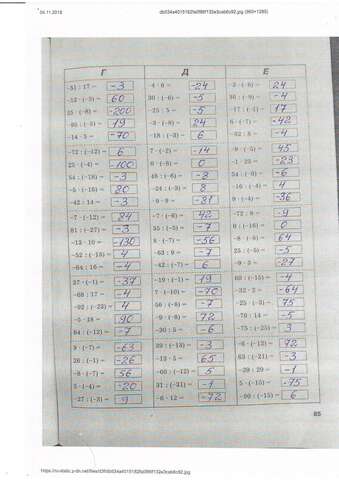 04.11.2018
Г Д Е
-51 : 17 = -3 -4 · 6 = -24 -3 · (-8) 24
-12 · (-5) 60 30 : (-6) = -5 36 : (-9) = -4
25 · (-8) = -200 -25 : 5 = -5 -17 : (-1) 17
-95 : (-5) = 19 -3 · (-8) = 24 6 · (-7) = -42
-14 · 5 = -70 -18 : (-3) 6 -32 : 8 = -4
-72 : (-12) 6 7 · (-2) = -14 -9 · (-5) = 45
25 · (-4) = -100 0 -1 · 23 = -23
54 : (-18) = -3 48 : (-6) = -8 54 : (-9) = -6
-5 · (-16) = 80 -24 : (-3) = 8 -16 : (-4) 4
-42 : 14 = -3 -9 · 9 = -81 9 · (-4) = -36
-7 · (-12) = 84 -7 · (-6) = 42 -72 : 8 = -9
81 : (-27) = -3 0 · (-16) = 0
-13 · 10 = -130 8 · (-7) = -56 -8 · (-8) = 64
-52 : (-13) = 4 -63 : 9 = -7 25 : (-5) = -5
-64 : 16 = -4 -42 : (-7) 6 -9 · 3 = -27
37 · (-1) = -37 -19 · (-1) = 19 60 : (-15) = -4
-68 : 17 = -4 7 · (-10) = -70 -32 · 2 = -64
-92 : (-23) = 4 56 : (-8) = -7 -25 · (-3) = 75
-5 · 18 = 90 -9 · (-8) = 72 -70 : 14 = -5
84 : (-12) = -7 -30 : 5 = -6 -75 : (-25) 3
9 · (-7) = -63 39 : (-13) = -3 -6 · (-12) 72
26 · (-1) = -26 -13 · 5 = 65 63 : (-21) = -3
-8 · (-7) = 56 -60 : (-12) = 5 -29 : 29 = -1
5 · (-4) = -20 31 : (-31) = -1 5 · (-15) = -75
-27 : (-3) = 9 -6 · 12 = -72 -90 : (-15) = 6
85